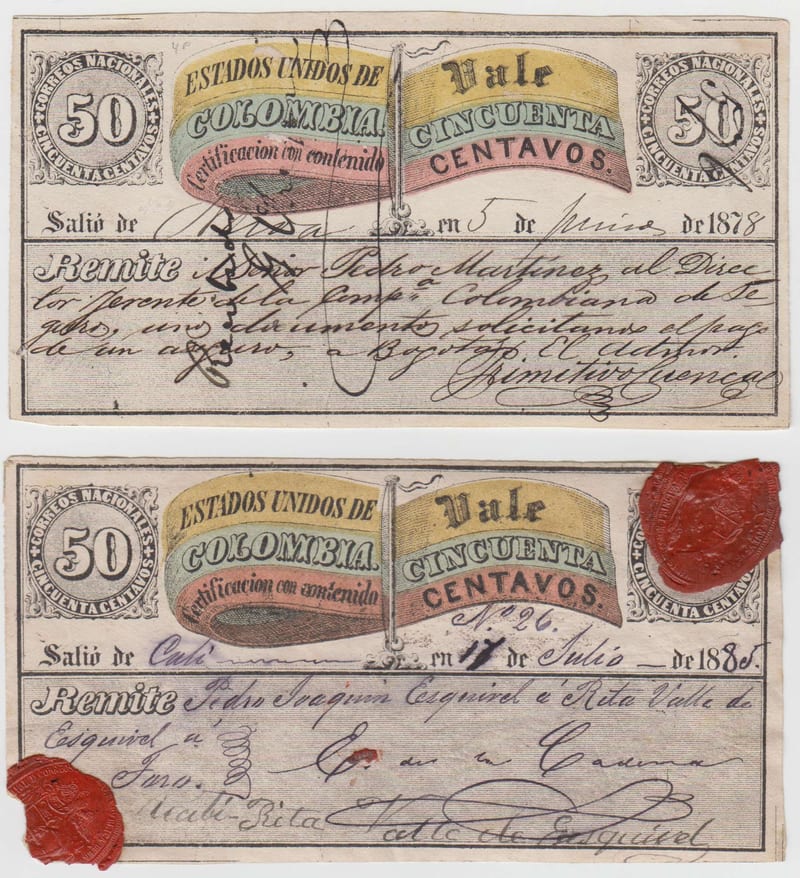 CORREOS NACIONALES
50
CINCUENTA CENTAVOS
ESTADOS UNIDOS DE
COLOMBIA.
Certificacion con contenido
Vale
CINCUENTA
CENTAVOS.
CORREOS NACIONALES
50
CINCUENTA CENTAVOS
Salió de Neiva en 5 de Junio de 1878
Remite el Señor Pedro Martinez al Direc
tor jerente de la Compª Colombiana de Se
guro, uno documento solicitando el pago
de un seguro, a Bogotá. El Admor.
Primitivo Cuenca
CORREOS NACIONALES
50
CINCUENTA CENTAVOS
ESTADOS UNIDOS DE
COLOMBIA.
Certificacion con contenido
Vale
CINCUENTA
CENTAVOS.
CINCUENTA CENTAVOS
Nº 26.
Salió de Cali en 17 de Julio de 1885.
Remite Pedro Joaquin Esquivel á Rita Valle de
Esquivel á
Toro.
E. de la Cadena
Recibí - Rita Valle de Esquivel